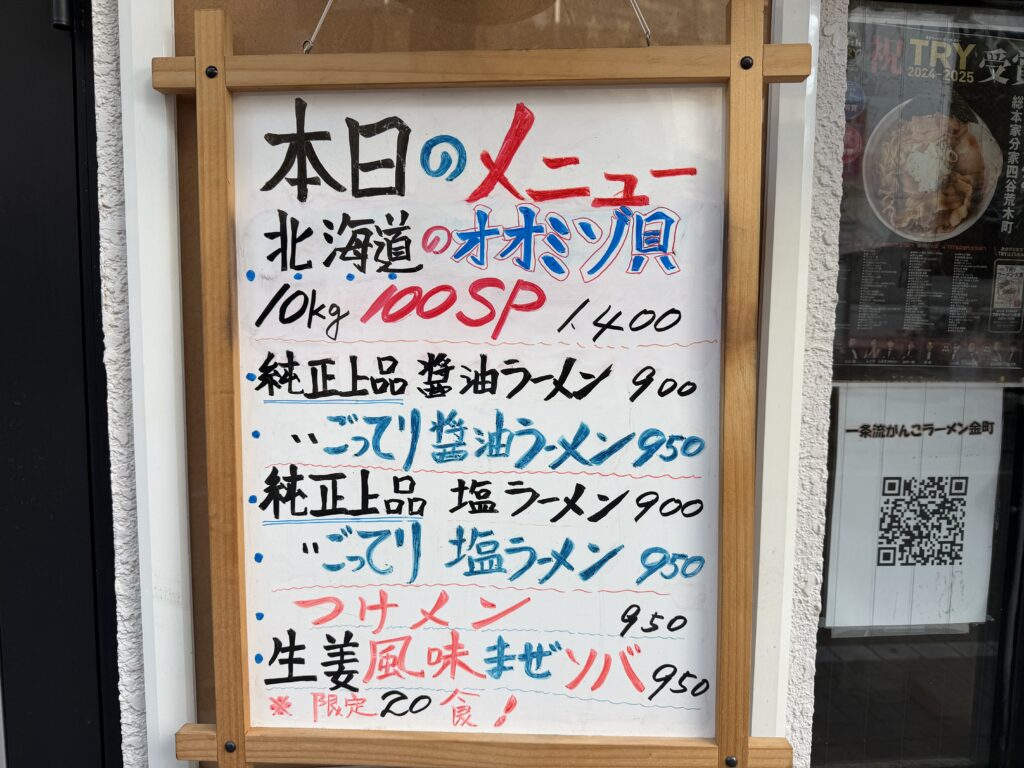 本日のメニュー
北海道のオオミゾ貝
10kg 100SP 1.400
純正上品 醤油ラーメン 900
〃ごってり醤油ラーメン950
純正上品 塩ラーメン 900
〃ごってり 塩ラーメン 950
つけメン 950
生姜風味まぜソバ 950
※限定20食!
祝 TRY 受賞
2024-2025
総本家分家四谷荒木町
一条流がんこラーメン金町